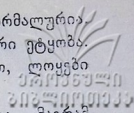 ორმალურია.
რი ეტყობა.
ი, ლოყები
ეროვნული
ბიბლიოთეკა